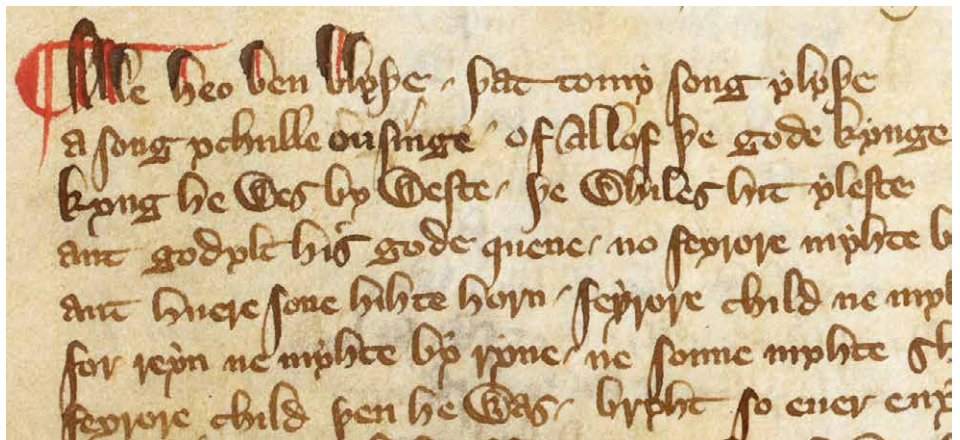 Alle heo ben blyþe · þat to my song ylyþe
a song ychulle ou singe · of Allof þe gode kynge
kyng he Wes by Weste · þe Whiles hit yleste
ant godylt his gode quene · no feyrore myhte b
ant huere sone hihte horn · feyrore child ne myh
for reyn ne myhte by ryne · ne sonne myhte sh
feyrore child þen he Was · bryht so euer eny